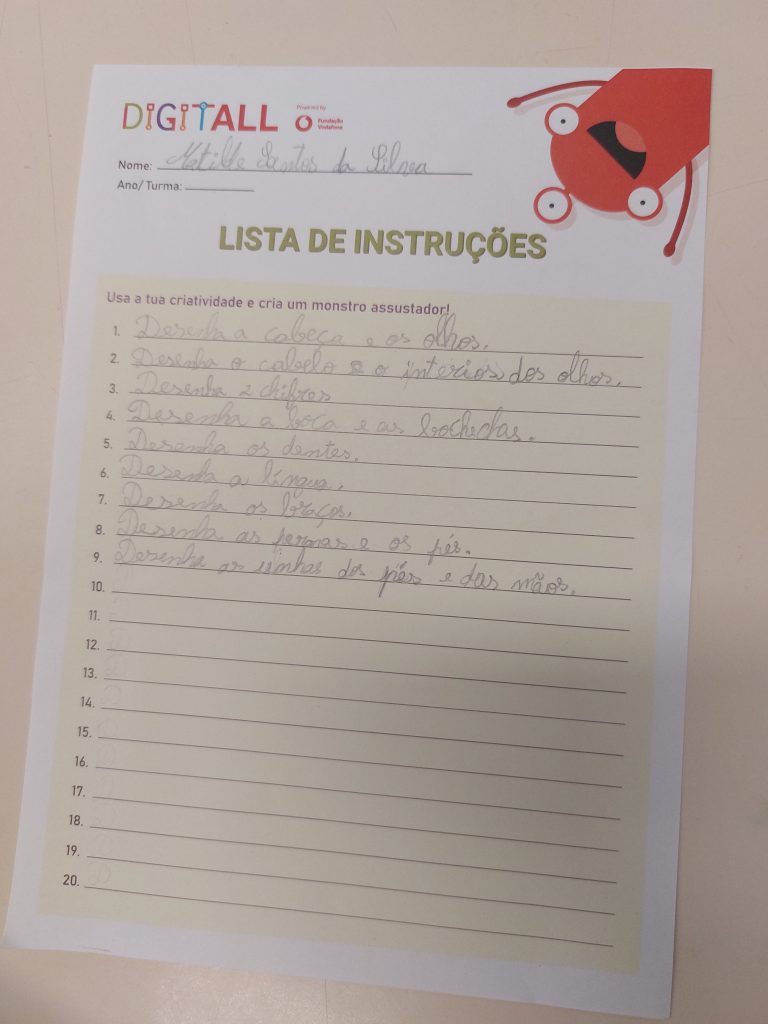 DIGITALL
Powered by
Fundação
Vodafone
Nome: Matilde Santos da Silva
Ano/ Turma:
LISTA DE INSTRUÇÕES
Usa a tua criatividade e cria um monstro assustador!
1. Desenha a cabeça e os olhos.
2. Desenha o cabelo e o interios dos olhos.
3. Desenha 2 chifres
4. Desenha a boca e as bochechas.
5. Desenha os dentes.
6. Desenha a língua.
7. Desenha os braços.
8. Desenha as pernas e os pés.
9. Desenha as unhas dos pés e das mãos.
10.
11.
12.
13.
14.
15.
16.
17.
18.
19.
20.